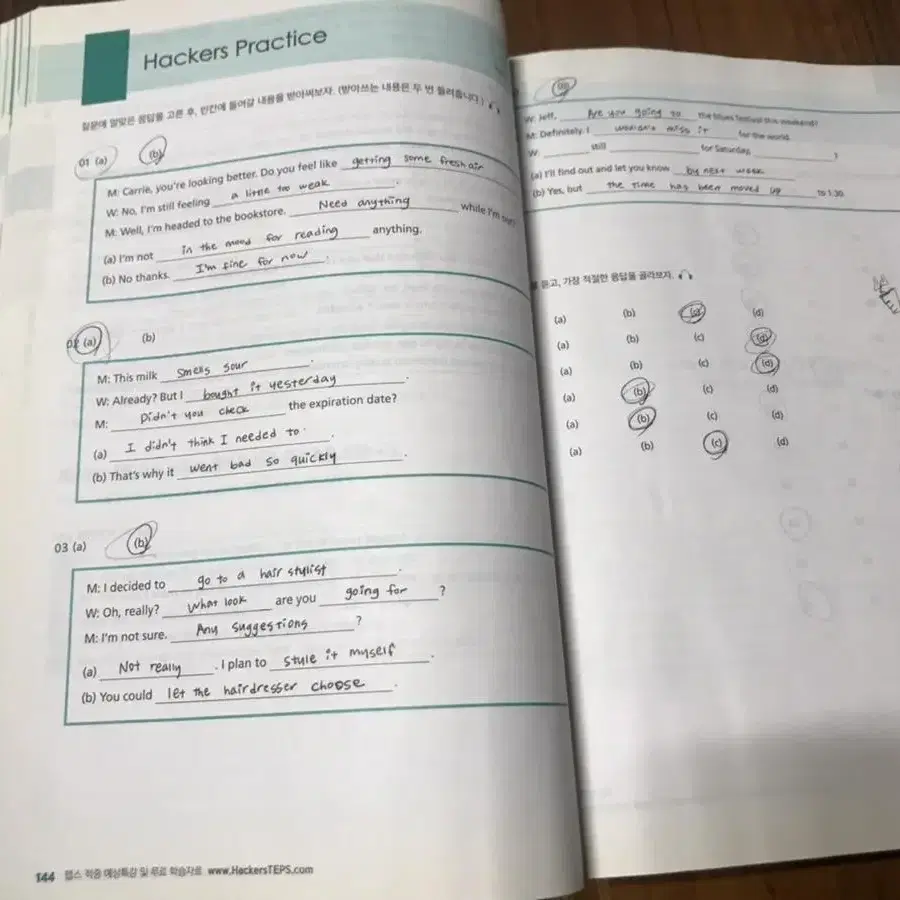 Hackers Practice
질문에 알맞은 응답을 고른 후, 빈칸에 들어갈 내용을 받아써보자. (받아쓰는 내용은 두 번 들려줍니다.)
01 (a) (b)
M: Carrie, you're looking better. Do you feel like getting some fresh air
W: No, I'm still feeling a little too weak.
M: Well, I'm headed to the bookstore. Need anything while I'm
(a) I'm not in the mood for reading anything.
(b) No thanks. I'm fine for now.
02 (a) (b)
M: This milk smells sour.
W: Already? But I bought it yesterday.
M: Didn't you check the expiration date?
(a) I didn't think I needed to.
(b) That's why it went bad so quickly.
03 (a) (b)
M: I decided to go to a hair stylist.
W: Oh, really? What look are you going for?
M: I'm not sure. Any suggestions?
(a) Not really. I plan to style it myself.
(b) You could let the hairdresser choose.
144 텝스 적중 예상특강 및 무료 학습자료 www.HackersTEPS.com
W: Jeff, Are you going to the blues festival this weekend?
M: Definitely. I wouldn't miss it for the world.
W: still for Saturday, ?
(a) I'll find out and let you know by next week
(b) Yes, but the time has been moved up to 1:30.
듣고, 가장 적절한 응답을 골라보자.
(a) (b) (c) (d)
(a) (b) (c) (d)
(a) (b) (c) (d)
(a) (b) (c) (d)
(a) (b) (c) (d)
(a) (b) (c) (d)